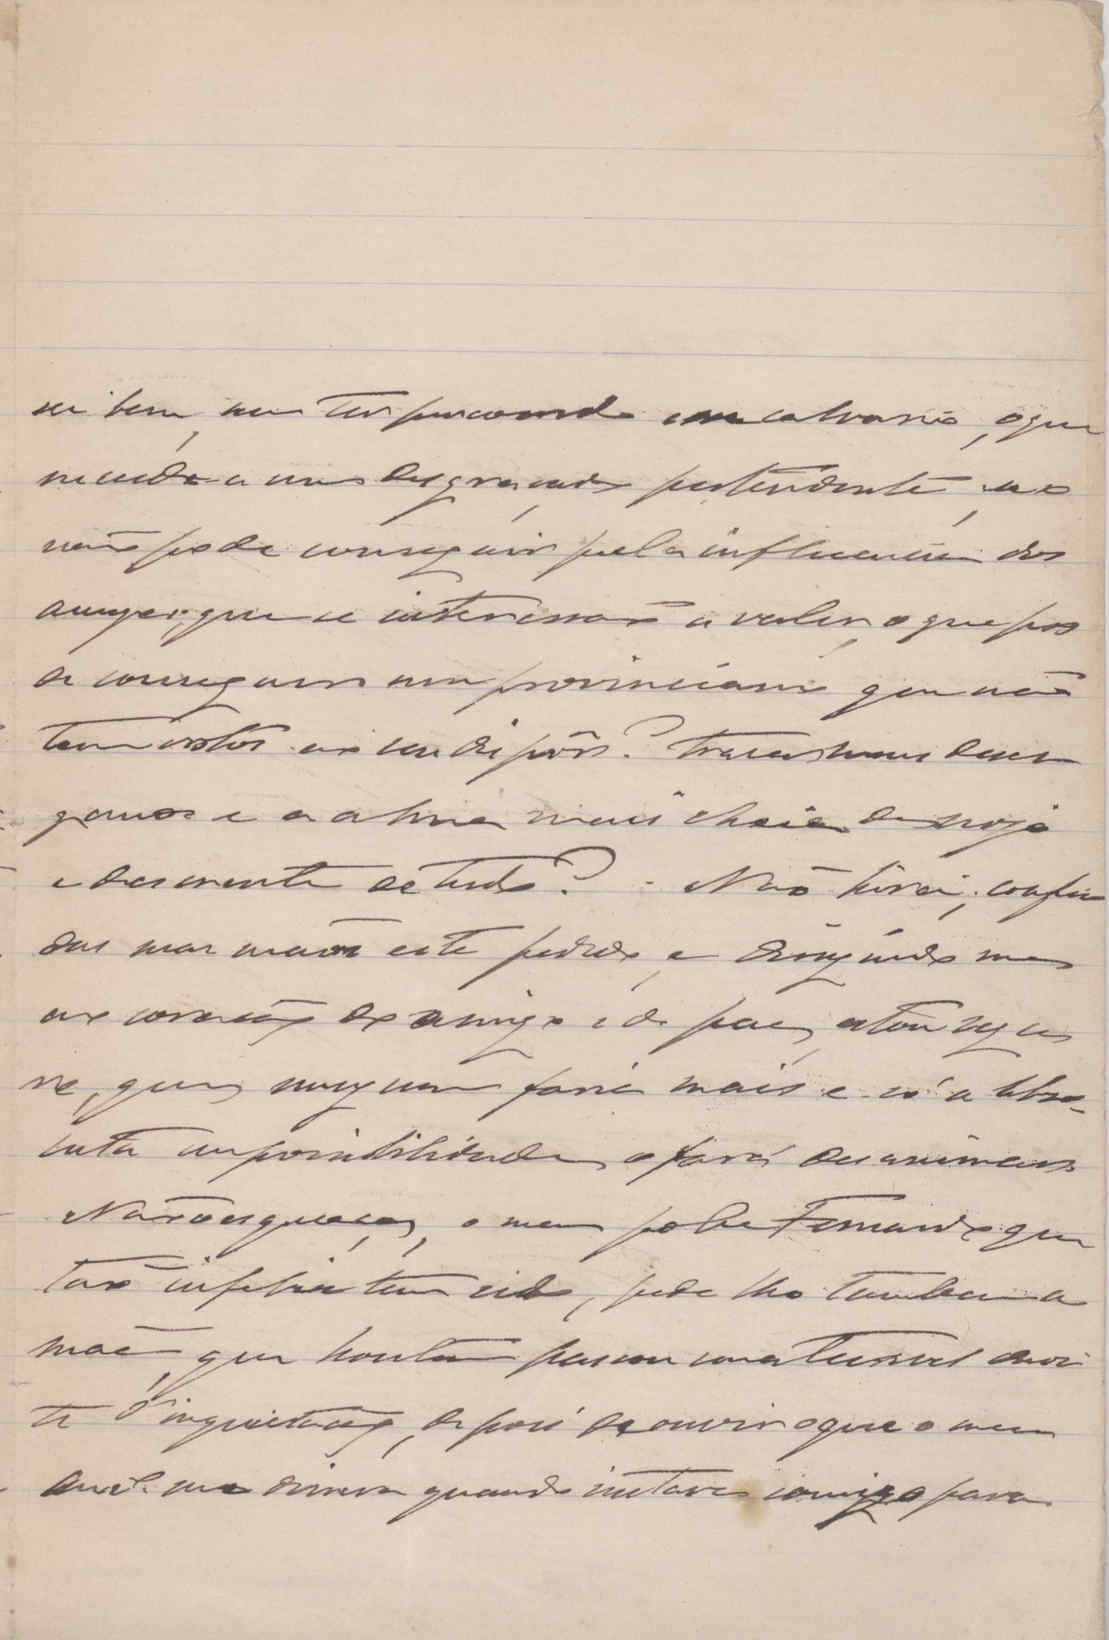 sei bem, sem ter percorrido um calvario, o que
succede a um desgraçado pertendente, se o
não pode conseguir pela influencia dos
amigos que se interessão a valer, o que po-
de conseguir um provinciano que não
tem votos ao seu dispôr? Trazer mais desen
ganos e a alma mais cheia de nojo
e descrente de tudo? - Não hirei; confio
das suas mãos este pedido, e dirigindo-me
ao coração do amigo e do pae, estou segu
ro, que ninguem faria mais e só a abso-
luta impossibilidade o fará desanimar.
Não esqueça, o meu pobre Fernando que
tão infeliz tem sido, pede lho tambem a
mãe, que hontem passou uma terrivel noi
te d'inquietação, depois de ouvir o que o meu
me dissera quando instava comigo para